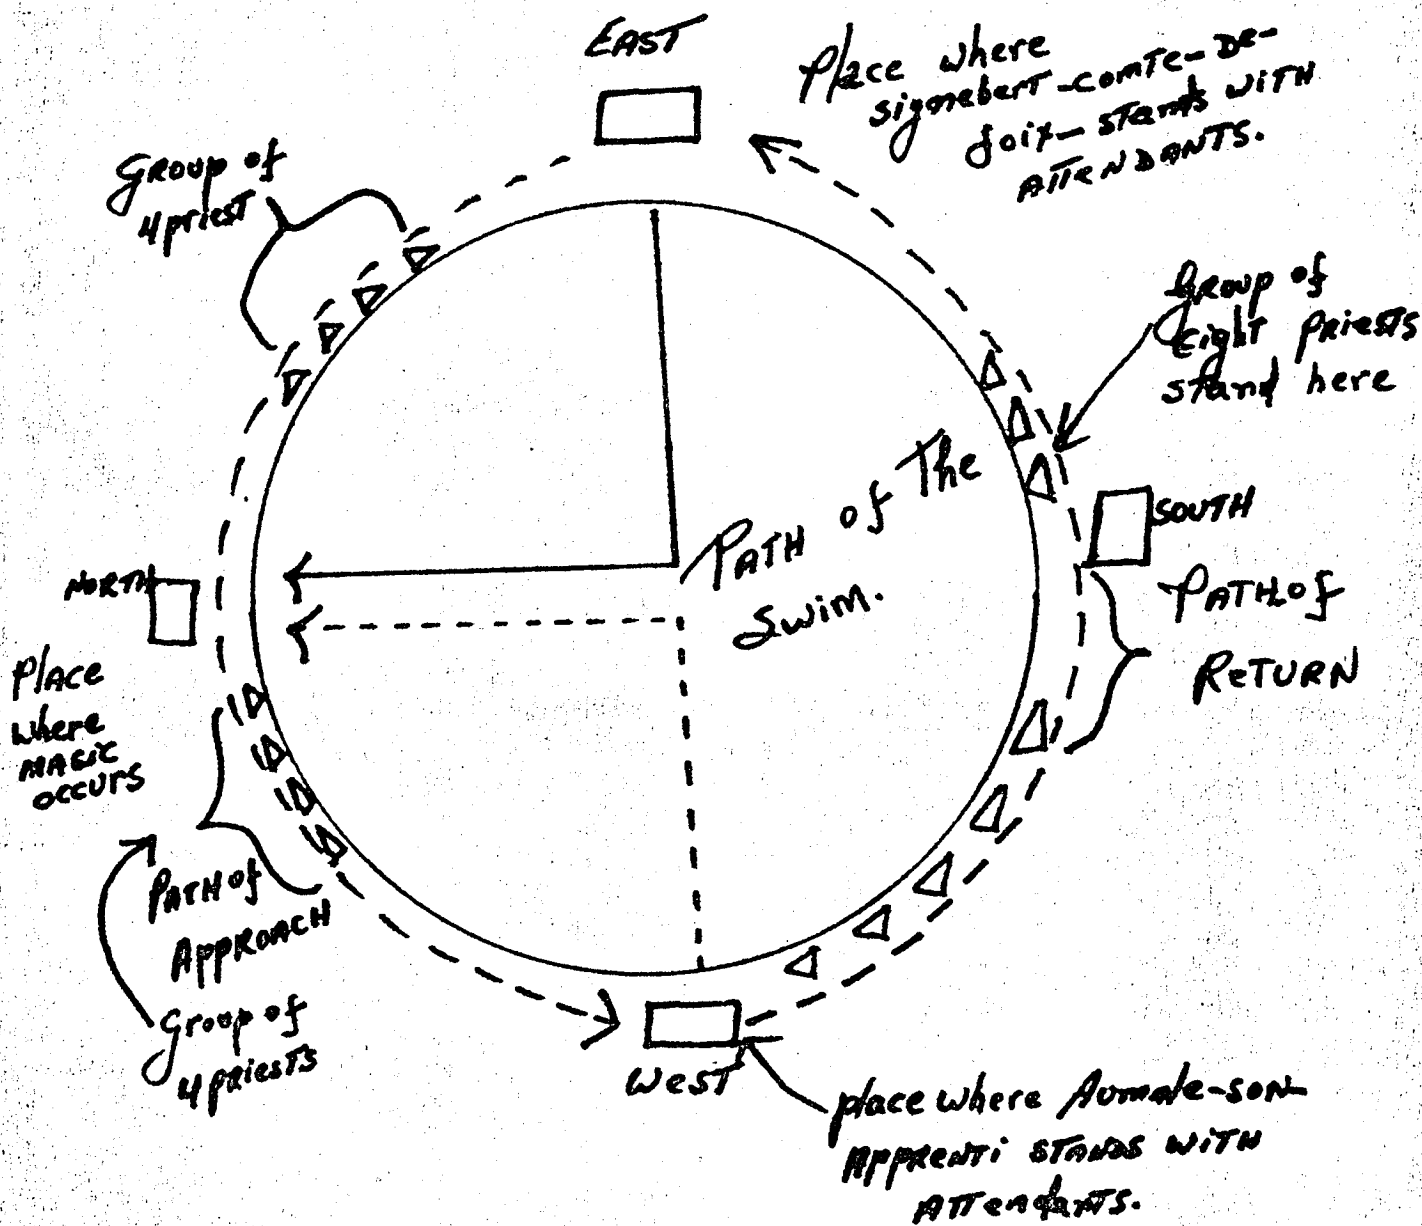 EAST
Place where
sigmebert-comte-DE-
foix-stands with
ATTENDANTS.
Group of
4 priest
Group of
Eight Priests
stand here
PATH of The
Swim.
SOUTH
PATH of
RETURN
NORTH
Place
where
MAGIC
OCCURS
PATH of
APPROACH
Group of
4 priests
WEST
place where Aumale-son-
Apprenti STANDS WITH
Attendants.